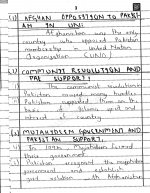 3
(1) AFGHAN OPPOSITION TO PAKIST-
AN IN UN:
Afghanistan was the only
country who opposed Pakistan
membership in United Nation
Organization (UNO)
(2) COMMUNIST REVOLUTION AND
PAK SUPPORT:
The communist revolution
Pakistan
Pakistan supported them on the
interest of country.
(3) MUTAHYDEEN GOVERNMENT AND
PAKISTAN SUPPORT:
In 1992, Mujahideen formed
their government
Pakistan recognized the
government and establish
good relation with Afghanistan